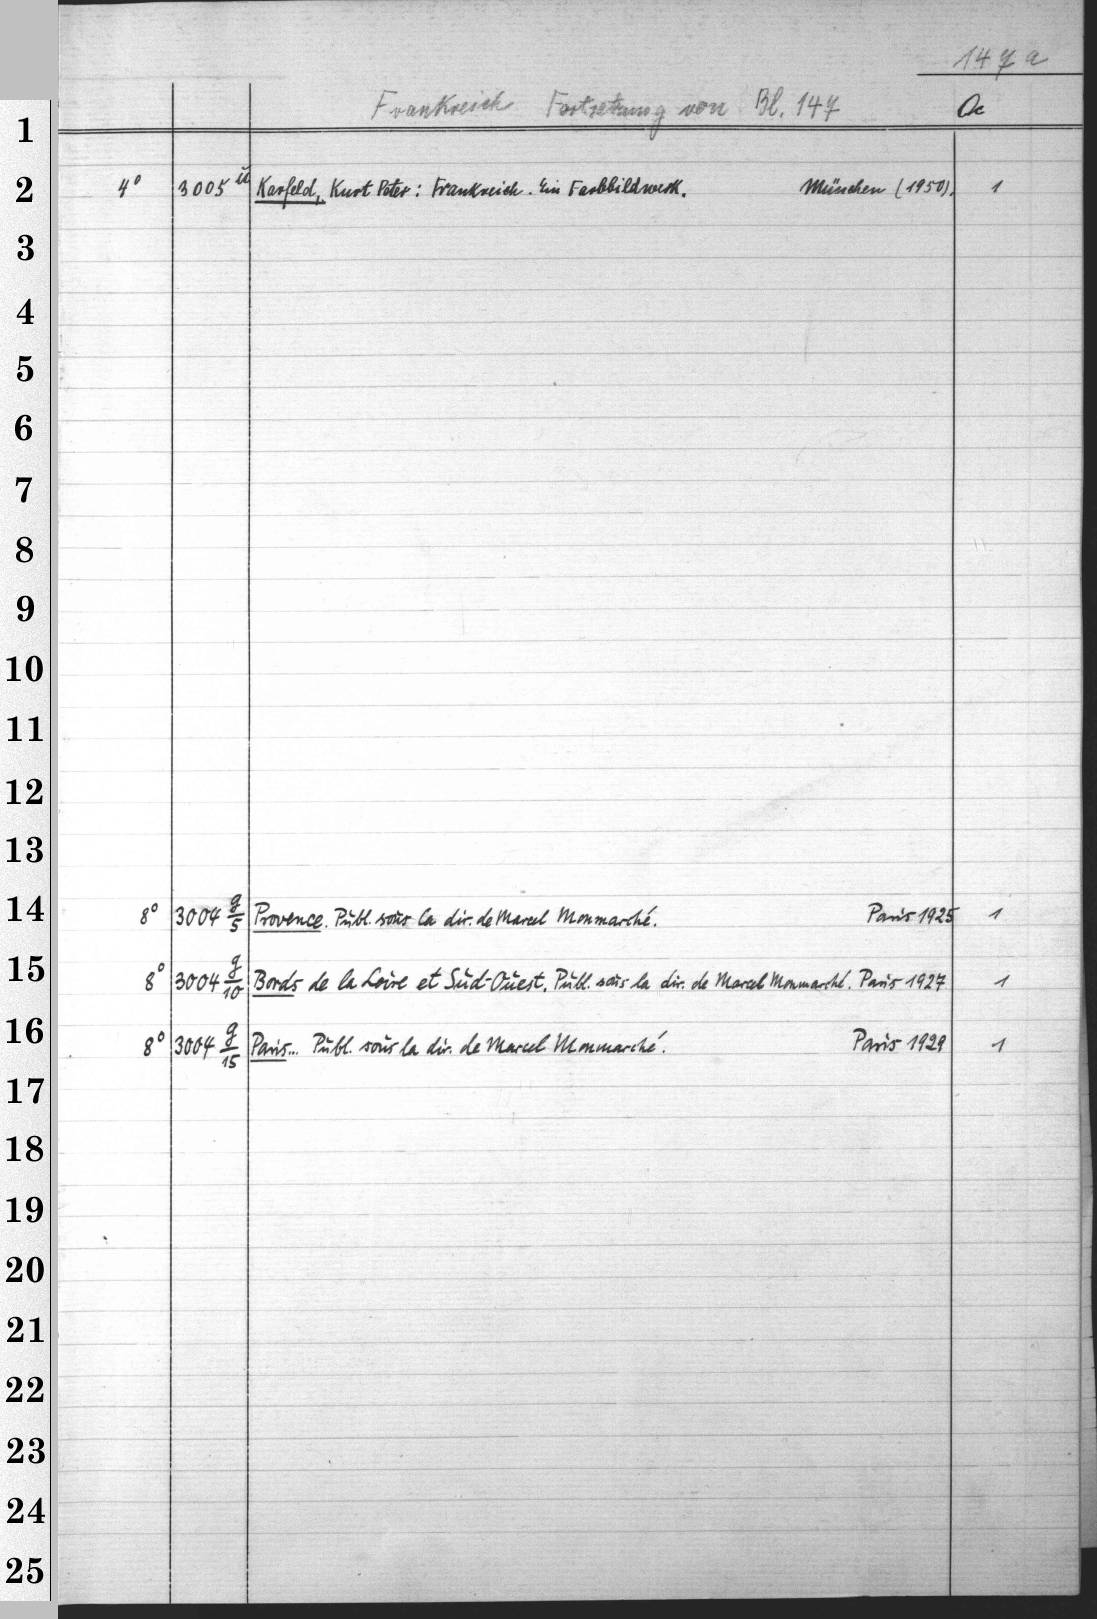 147a
Frankreich Fortsetzung von Bl. 147 Oc
1
2 4° 3005 ü Karfeld, Kurt Peter: Frankreich. Ein Farbbildwerk. München (1950). 1
3
4
5
6
7
8
9
10
11
12
13
14 8° 3004 g/5 Provence. Publ. sous la dir. de Marcel Monmarché. Paris 1925 1
15 8° 3004 g/10 Bords de la Loire et Sud-Ouest. Publ. sous la dir. de Marcel Monmarché. Paris 1927 1
16 8° 3004 g/15 Paris... Publ. sous la dir. de Marcel Monmarché. Paris 1929 1
17
18
19
20
21
22
23
24
25